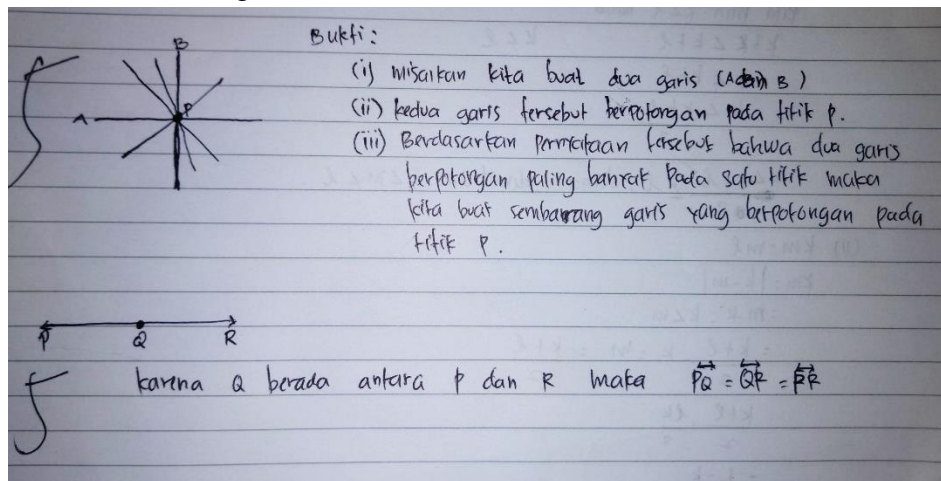 Bukti:
(i) misalkan kita buat dua garis (A dan B)
(ii) kedua garis tersebut berpotongan pada titik p.
(iii) Berdasarkan pernyataan tersebut bahwa dua garis
berpotongan paling banyak pada satu titik maka
kita buat sembarang garis yang berpotongan pada
titik p.
B
A
P
P Q R
karena Q berada antara p dan R maka PQ = QR = PR